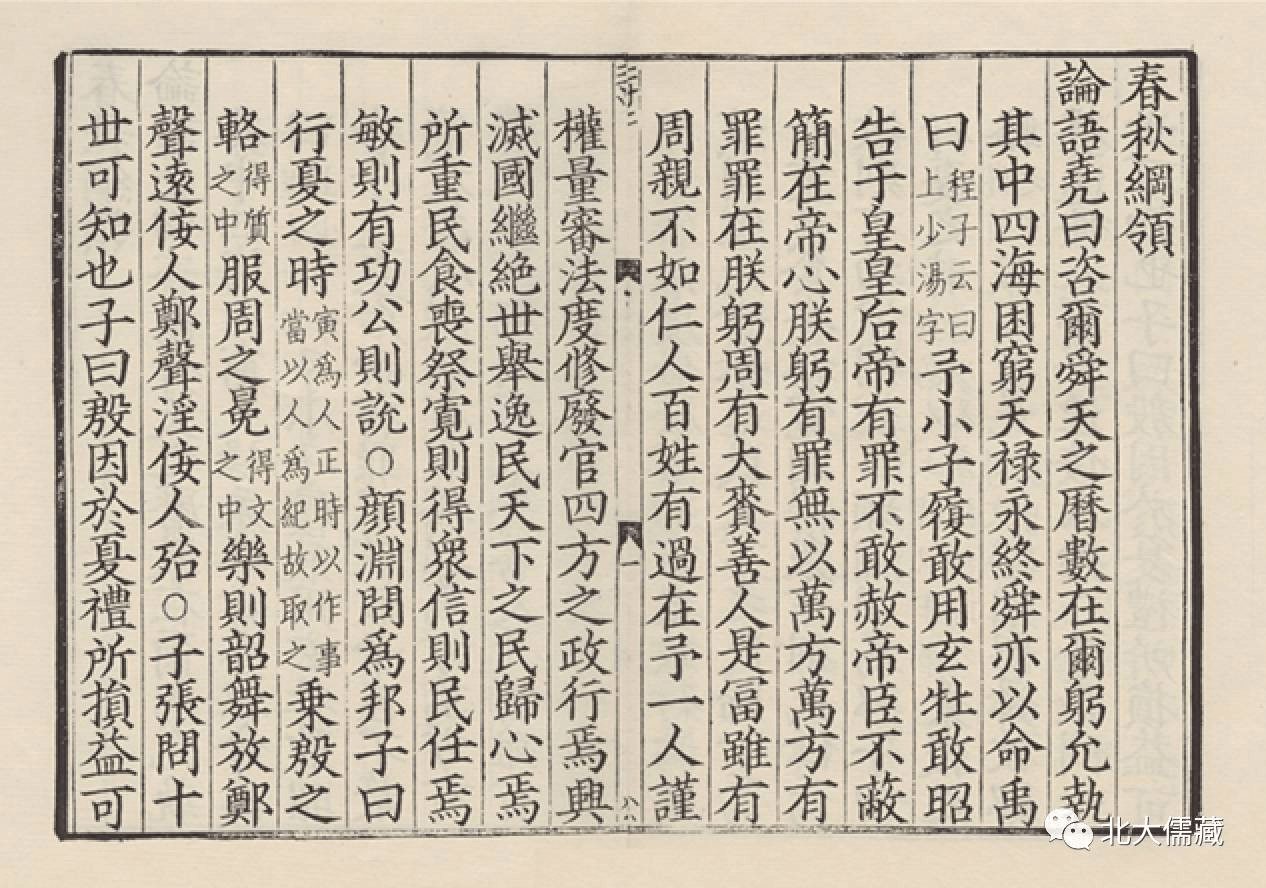 春秋綱領
論語堯曰咨爾舜天之曆數在爾躬允執
其中四海困窮天祿永終舜亦以命禹
曰程子云曰上少湯字予小子履敢用玄牡敢昭
告于皇皇后帝有罪不敢赦帝臣不蔽
簡在帝心朕躬有罪無以萬方萬方有
罪罪在朕躬周有大賚善人是冨雖有
周親不如仁人百姓有過在予一人謹
權量審法度修廢官四方之政行焉興
滅國繼絕世舉逸民天下之民歸心焉
所重民食喪祭寬則得衆信則民任焉
敏則有功公則說○顏淵問爲邦子曰
行夏之時寅爲人正時以作事當以人爲紀故取之乗殷之
輅得質之中服周之冕得文之中樂則韶舞放鄭
聲遠佞人鄭聲淫佞人殆○子張問十
世可知也子曰殷因於夏禮所損益可
一
北大儒藏